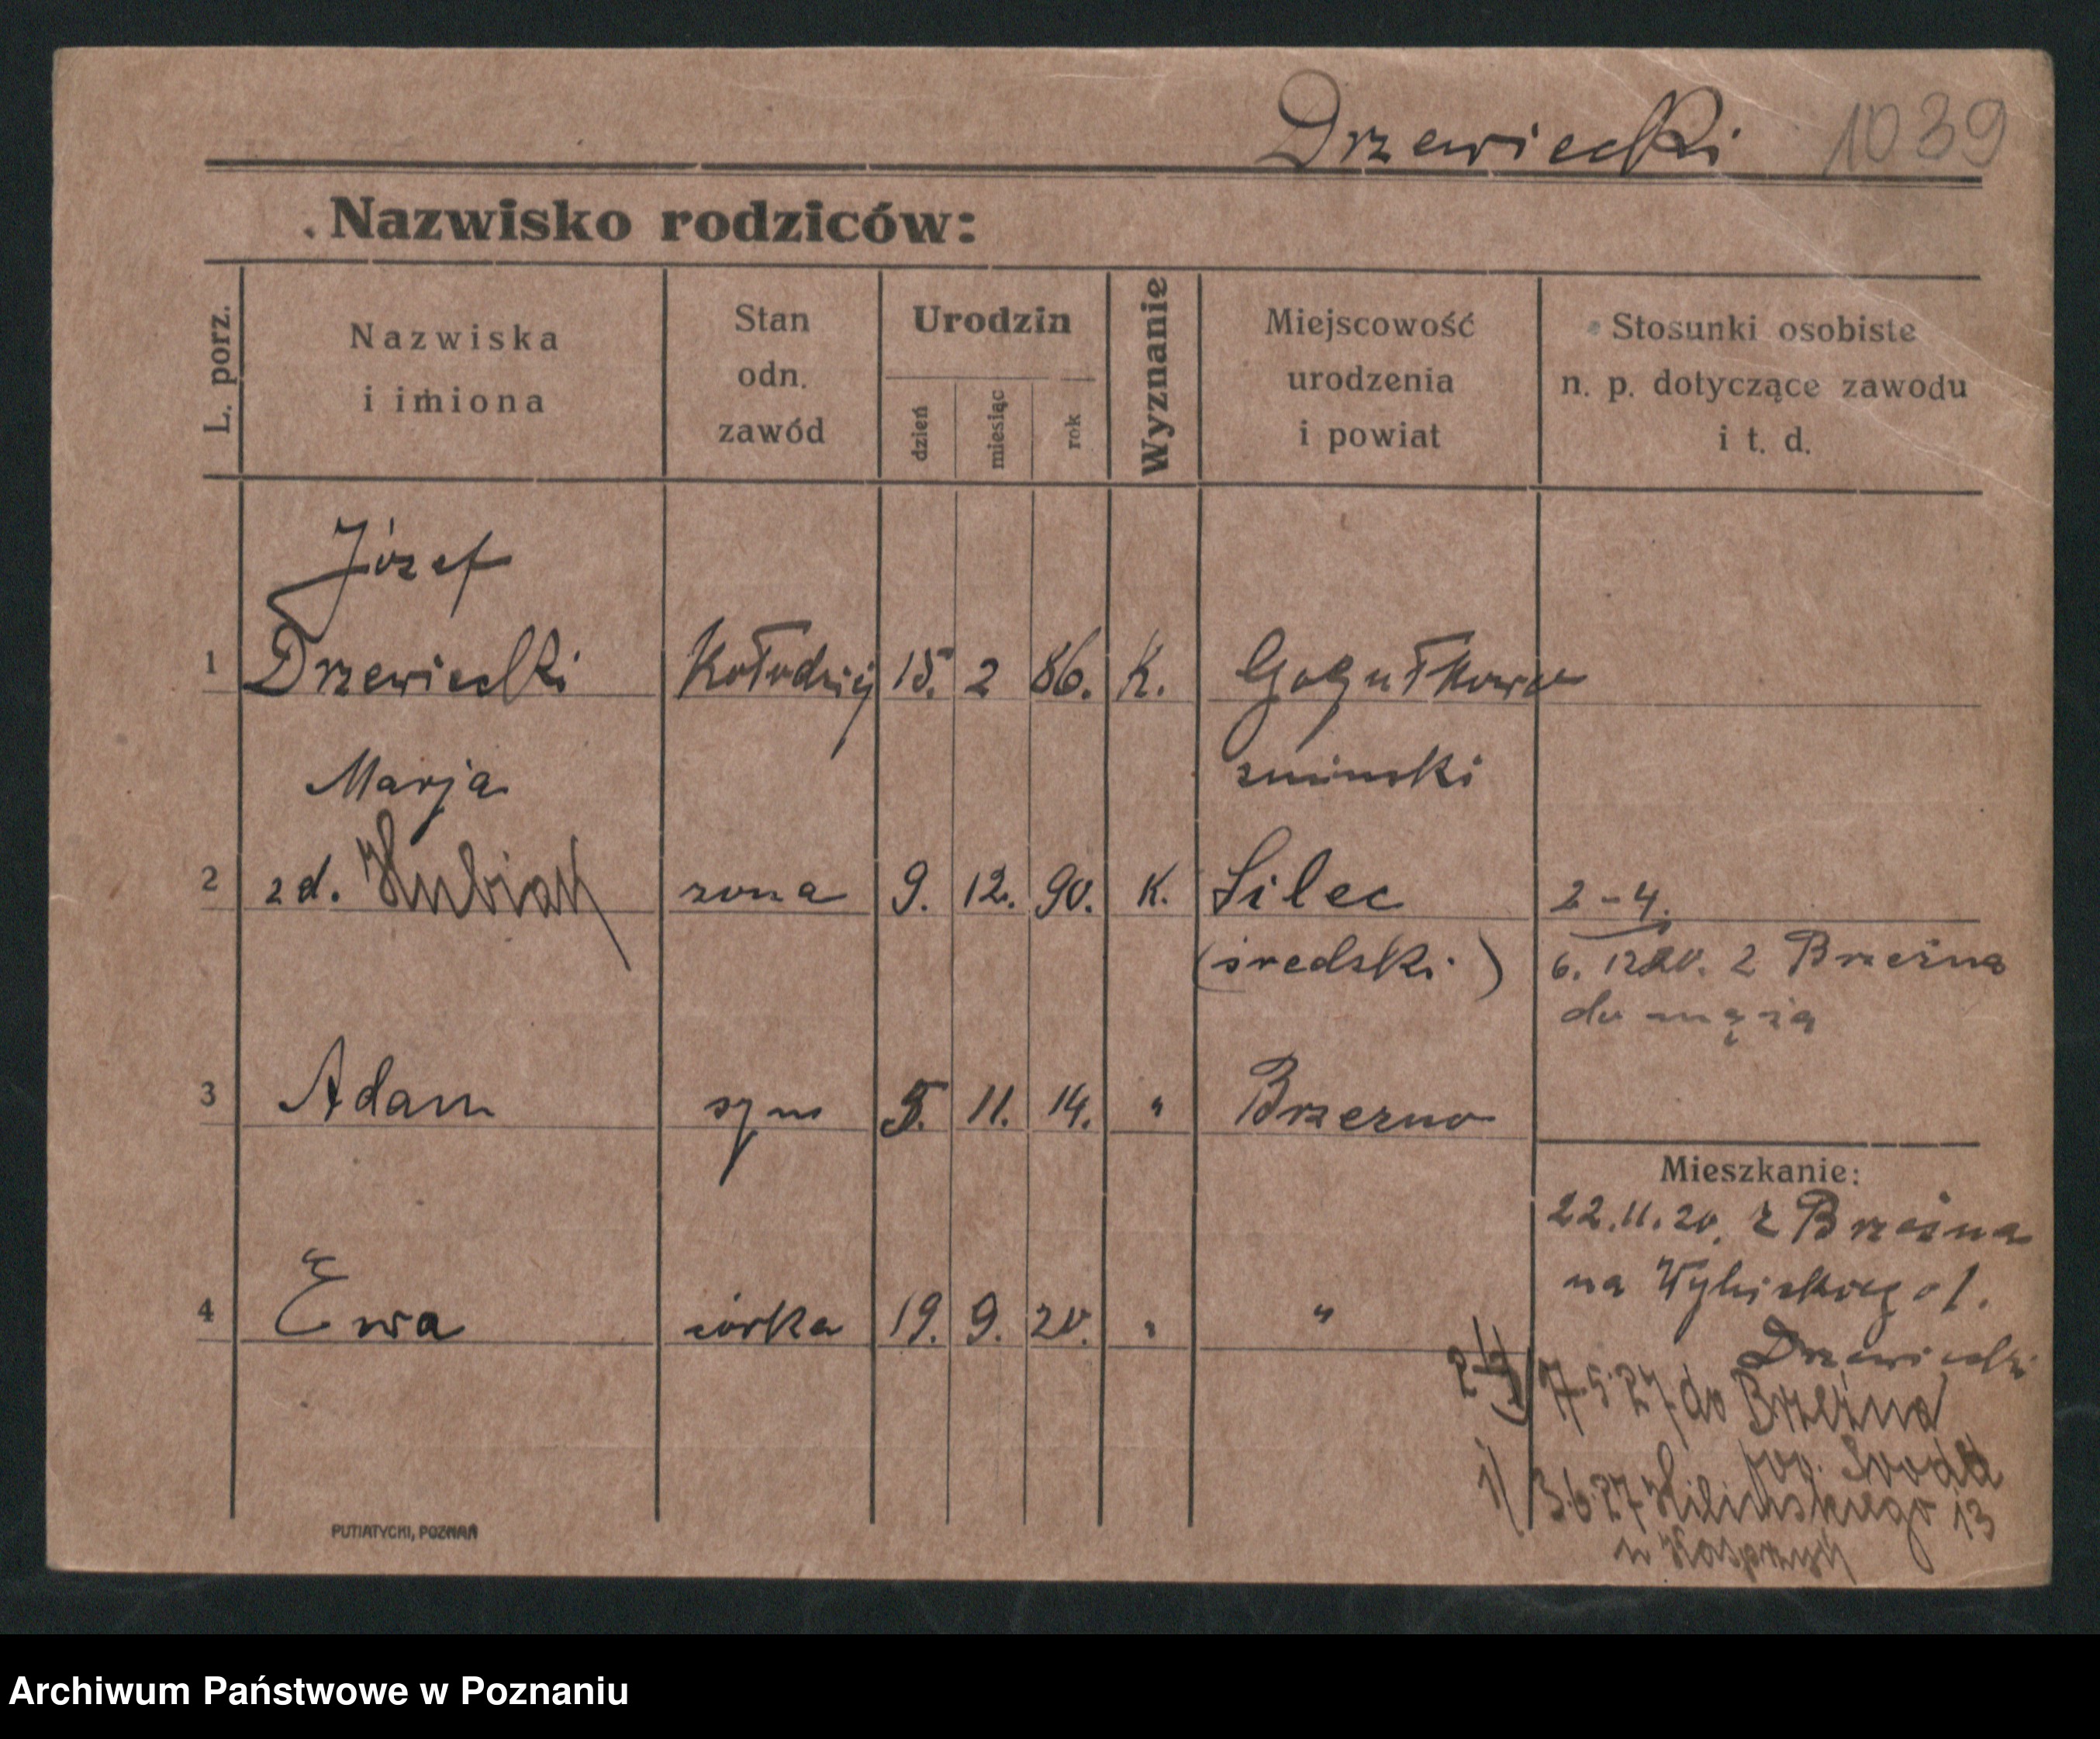 Drzewiecki 1039
Nazwisko rodziców:
L. porz.
Nazwiska
i imiona
Stan
odn.
zawód
Urodzin
dzień
miesiąc
rok
Wyznanie
Miejscowość
urodzenia
i powiat
Stosunki osobiste
n. p. dotyczące zawodu
i t. d.
Józef
1 Drzewiecki Kołodziej 15. 2 86. K. Gogułkowo
zninski
Marja
2 zd. Kubiak zona 9. 12. 90. K. Silec 2-4.
(sredski) 6. 12 20. z Brzeźna
do męża
3 Adam syn 5. 11. 14. " Brzezno
Mieszkanie:
22.11.20. z Brzeźna
na 1.
4 Ewa córka 19. 9. 20. " "
Drzewiecki
2-4/ 17.5.27 do Brzeźna
pow. Środa
1/ 3.6.27 Kilinskiego 13
u Kasprzyk
PUTIATYCKI, POZNAŃ
Archiwum Państwowe w Poznaniu